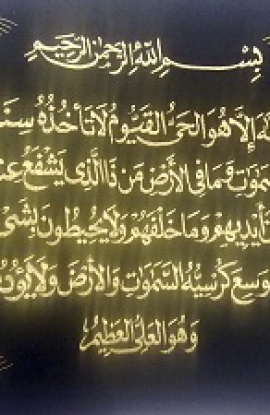 بِسْمِ اللَّهِ الرَّحْمَٰنِ الرَّحِيمِ
إِلَّا هُوَ الْحَيُّ الْقَيُّومُ لَا تَأْخُذُهُ
وَمَا فِي الْأَرْضِ مَن ذَا الَّذِي يَشْفَعُ
أَيْدِيهِمْ وَمَا خَلْفَهُمْ وَلَا يُحِيطُونَ
وَسِعَ كُرْسِيُّهُ السَّمَٰوَٰتِ وَالْأَرْضَ وَلَا
وَهُوَ الْعَلِيُّ الْعَظِيمُ